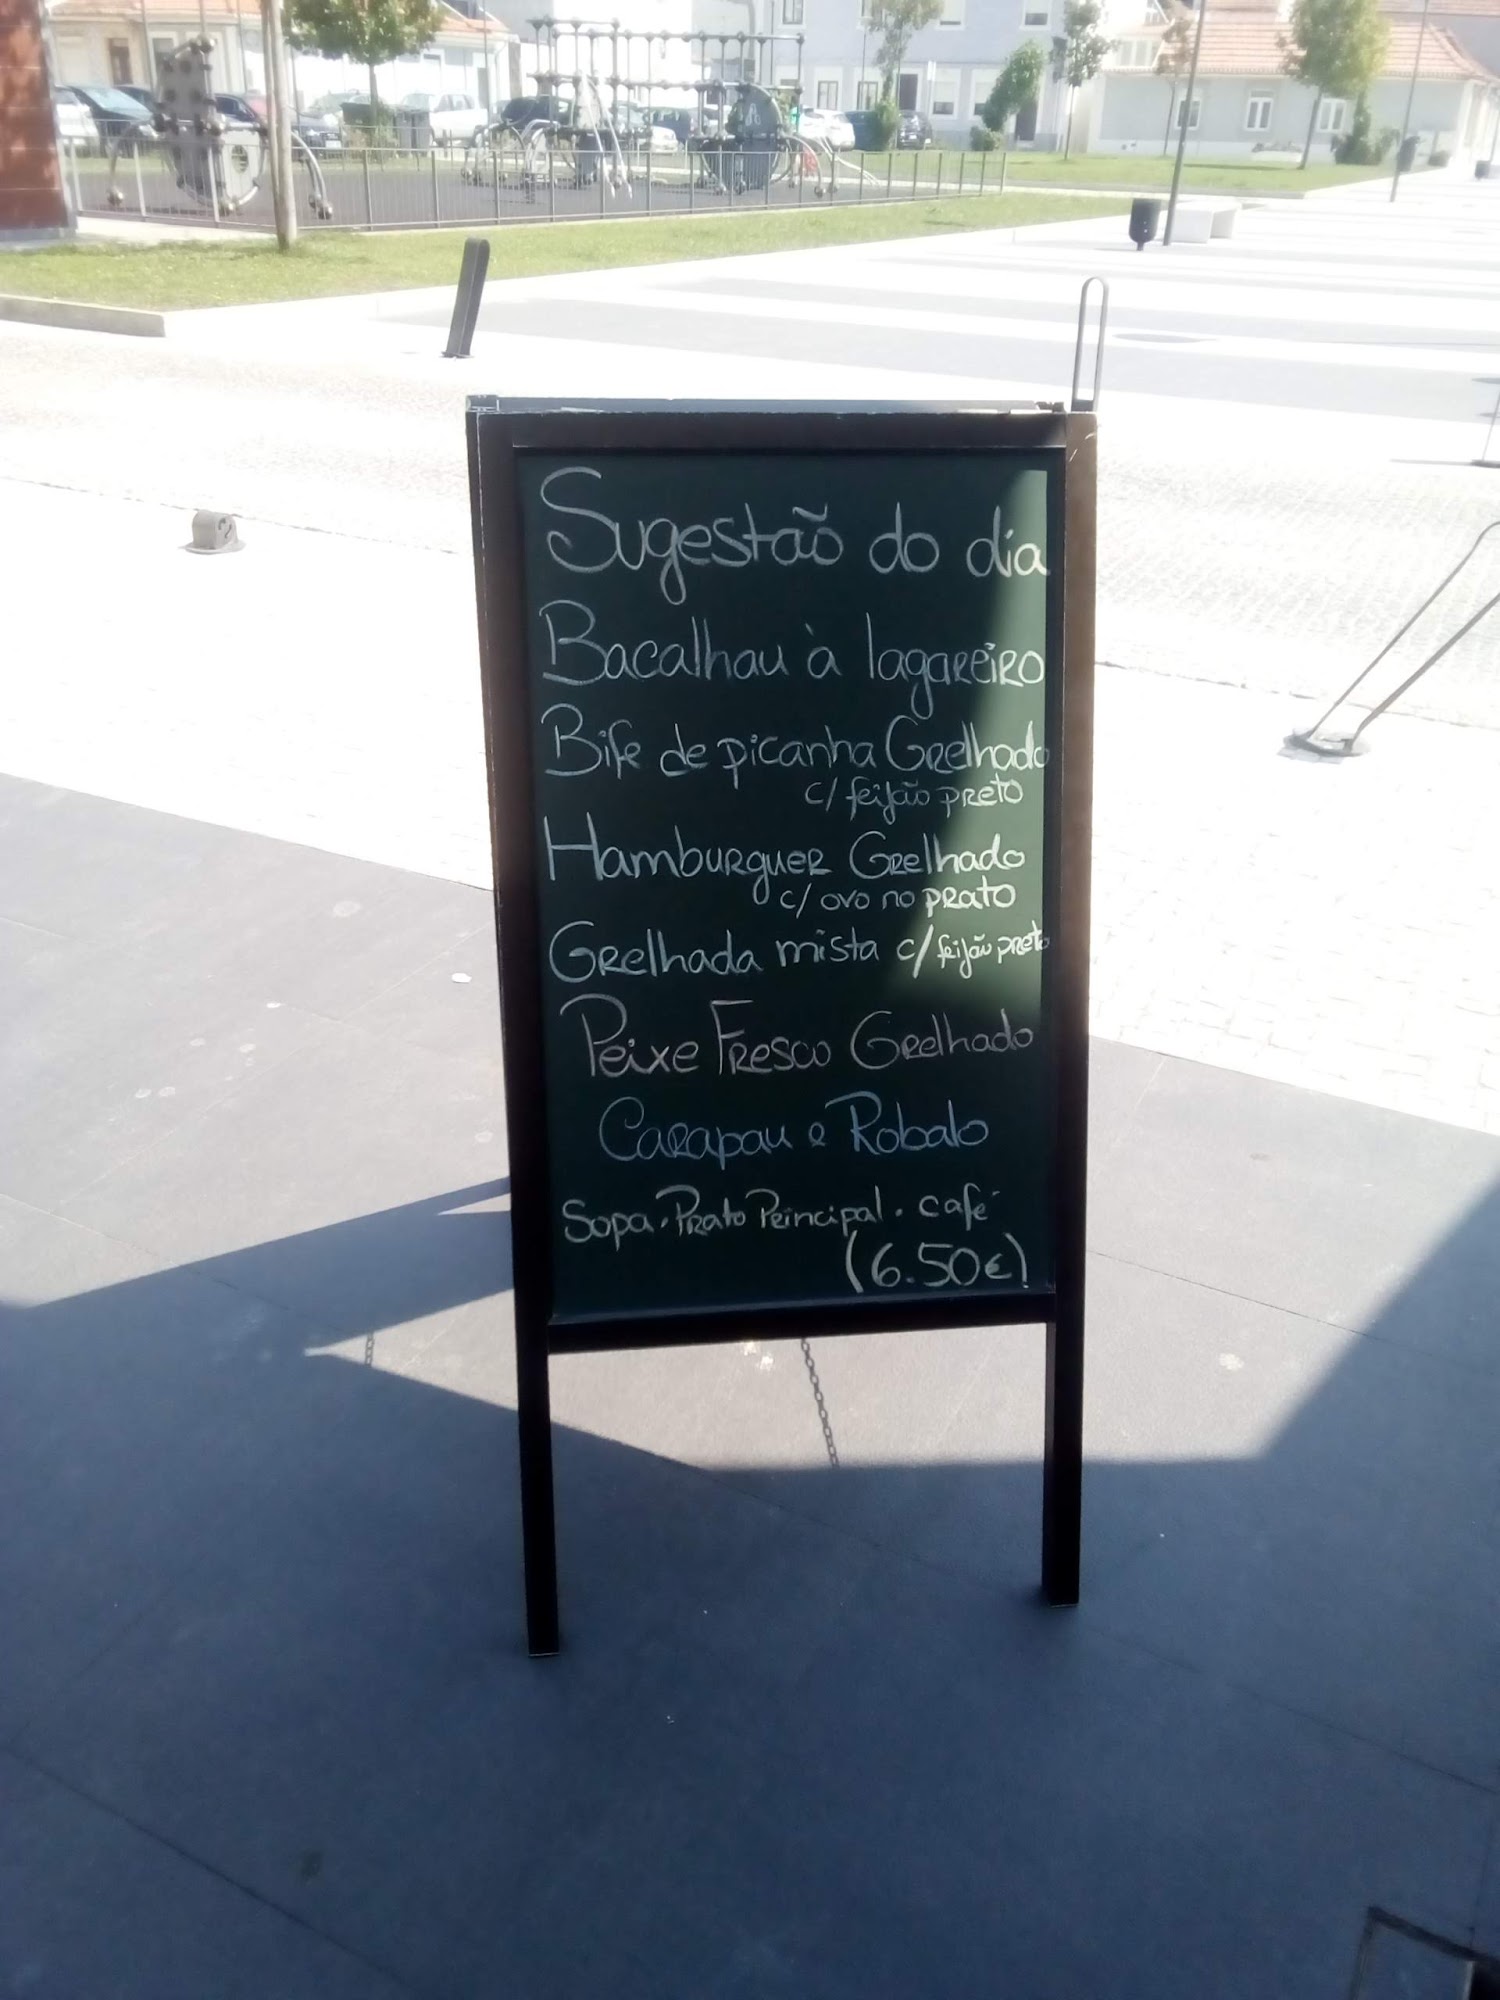 Sugestão do dia
Bacalhau à lagareiro
Bife de picanha Grelhado
c/ feijão preto
Hamburguer Grelhado
c/ ovo no prato
Grelhada mista c/ feijão preto
Peixe Fresco Grelhado
Carapau e Robalo
Sopa · Prato Principal · café
(6.50€)